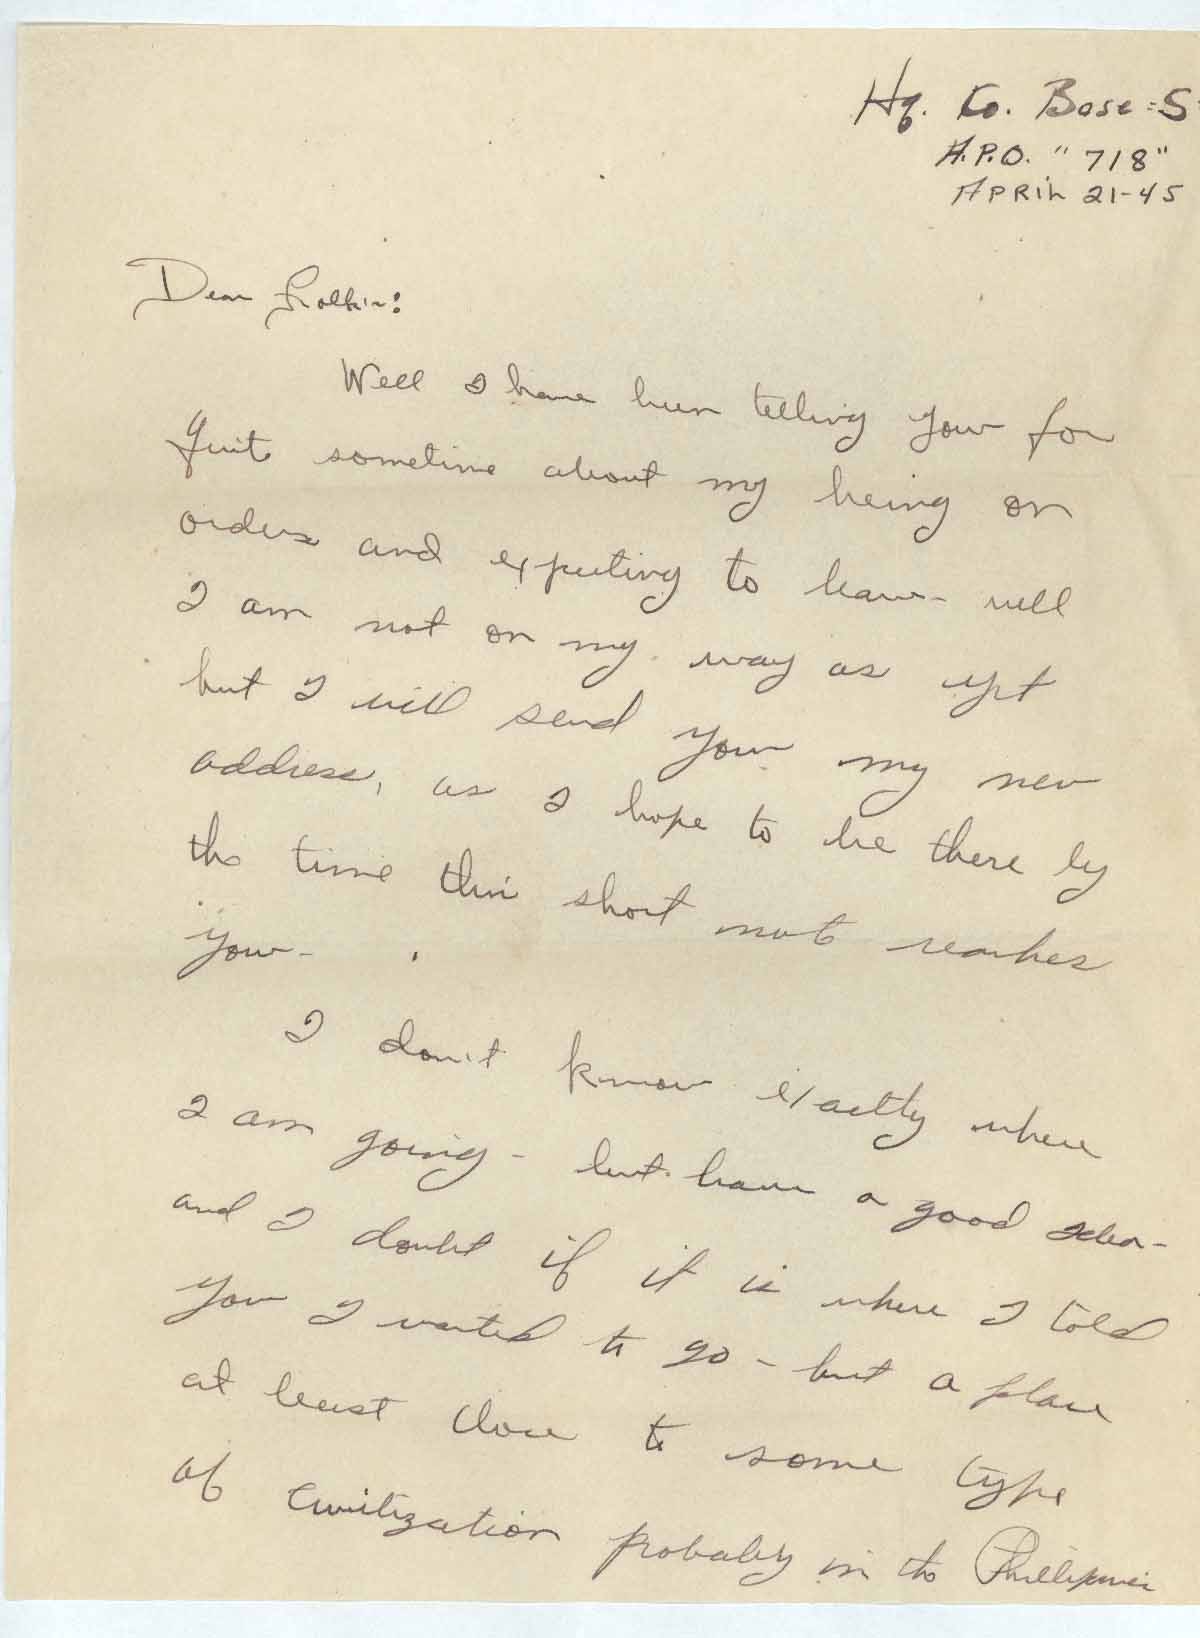 Hq. Co. Base=S
A.P.O. "718"
APRil 21-45
Dear Frolkin:
Well I have been telling you for
quite sometime about my being on
orders and expecting to leave- well
I am not on my way as yet
but I will send you my new
address, as I hope to be there by
the time this short note reaches
you-
I don't know exactly where
I am going - but have a good Idea-
and I doubt if it is where I told
you I wanted to go - but a place
at least close to some type
of Civilization probably in the Phillipines